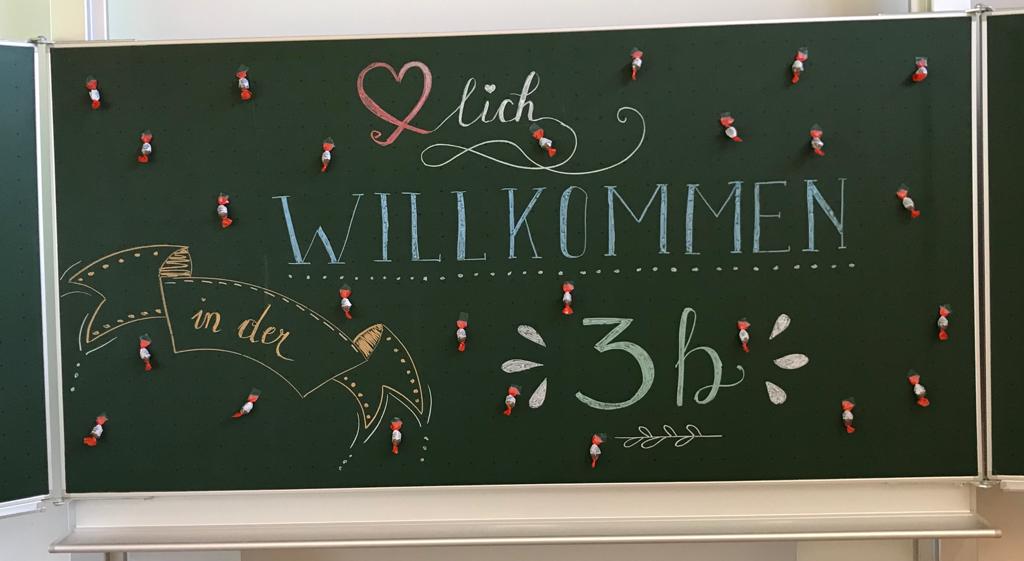 lich
WILLKOMMEN
in der
3b